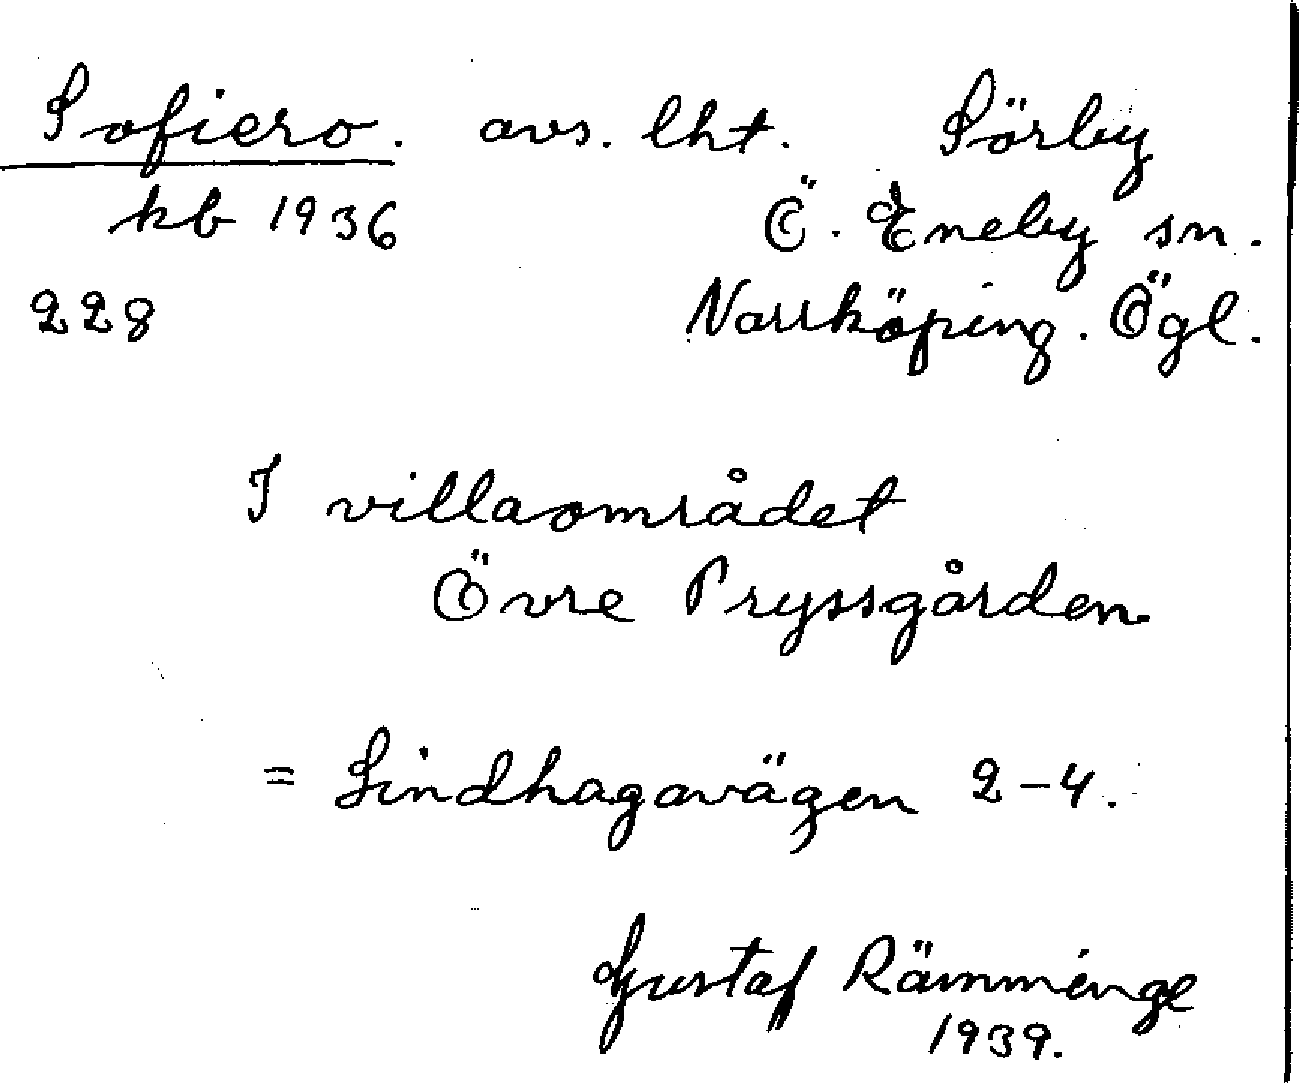 Sofiero. avs. lht. Sörby
kb 1936 Ö. Eneby sn.
228 Norrköping. Ögl.
I villaområdet
Övre Pryssgården.
= Lindhagavägen 2-4.
Gustaf Rämminge
1939.